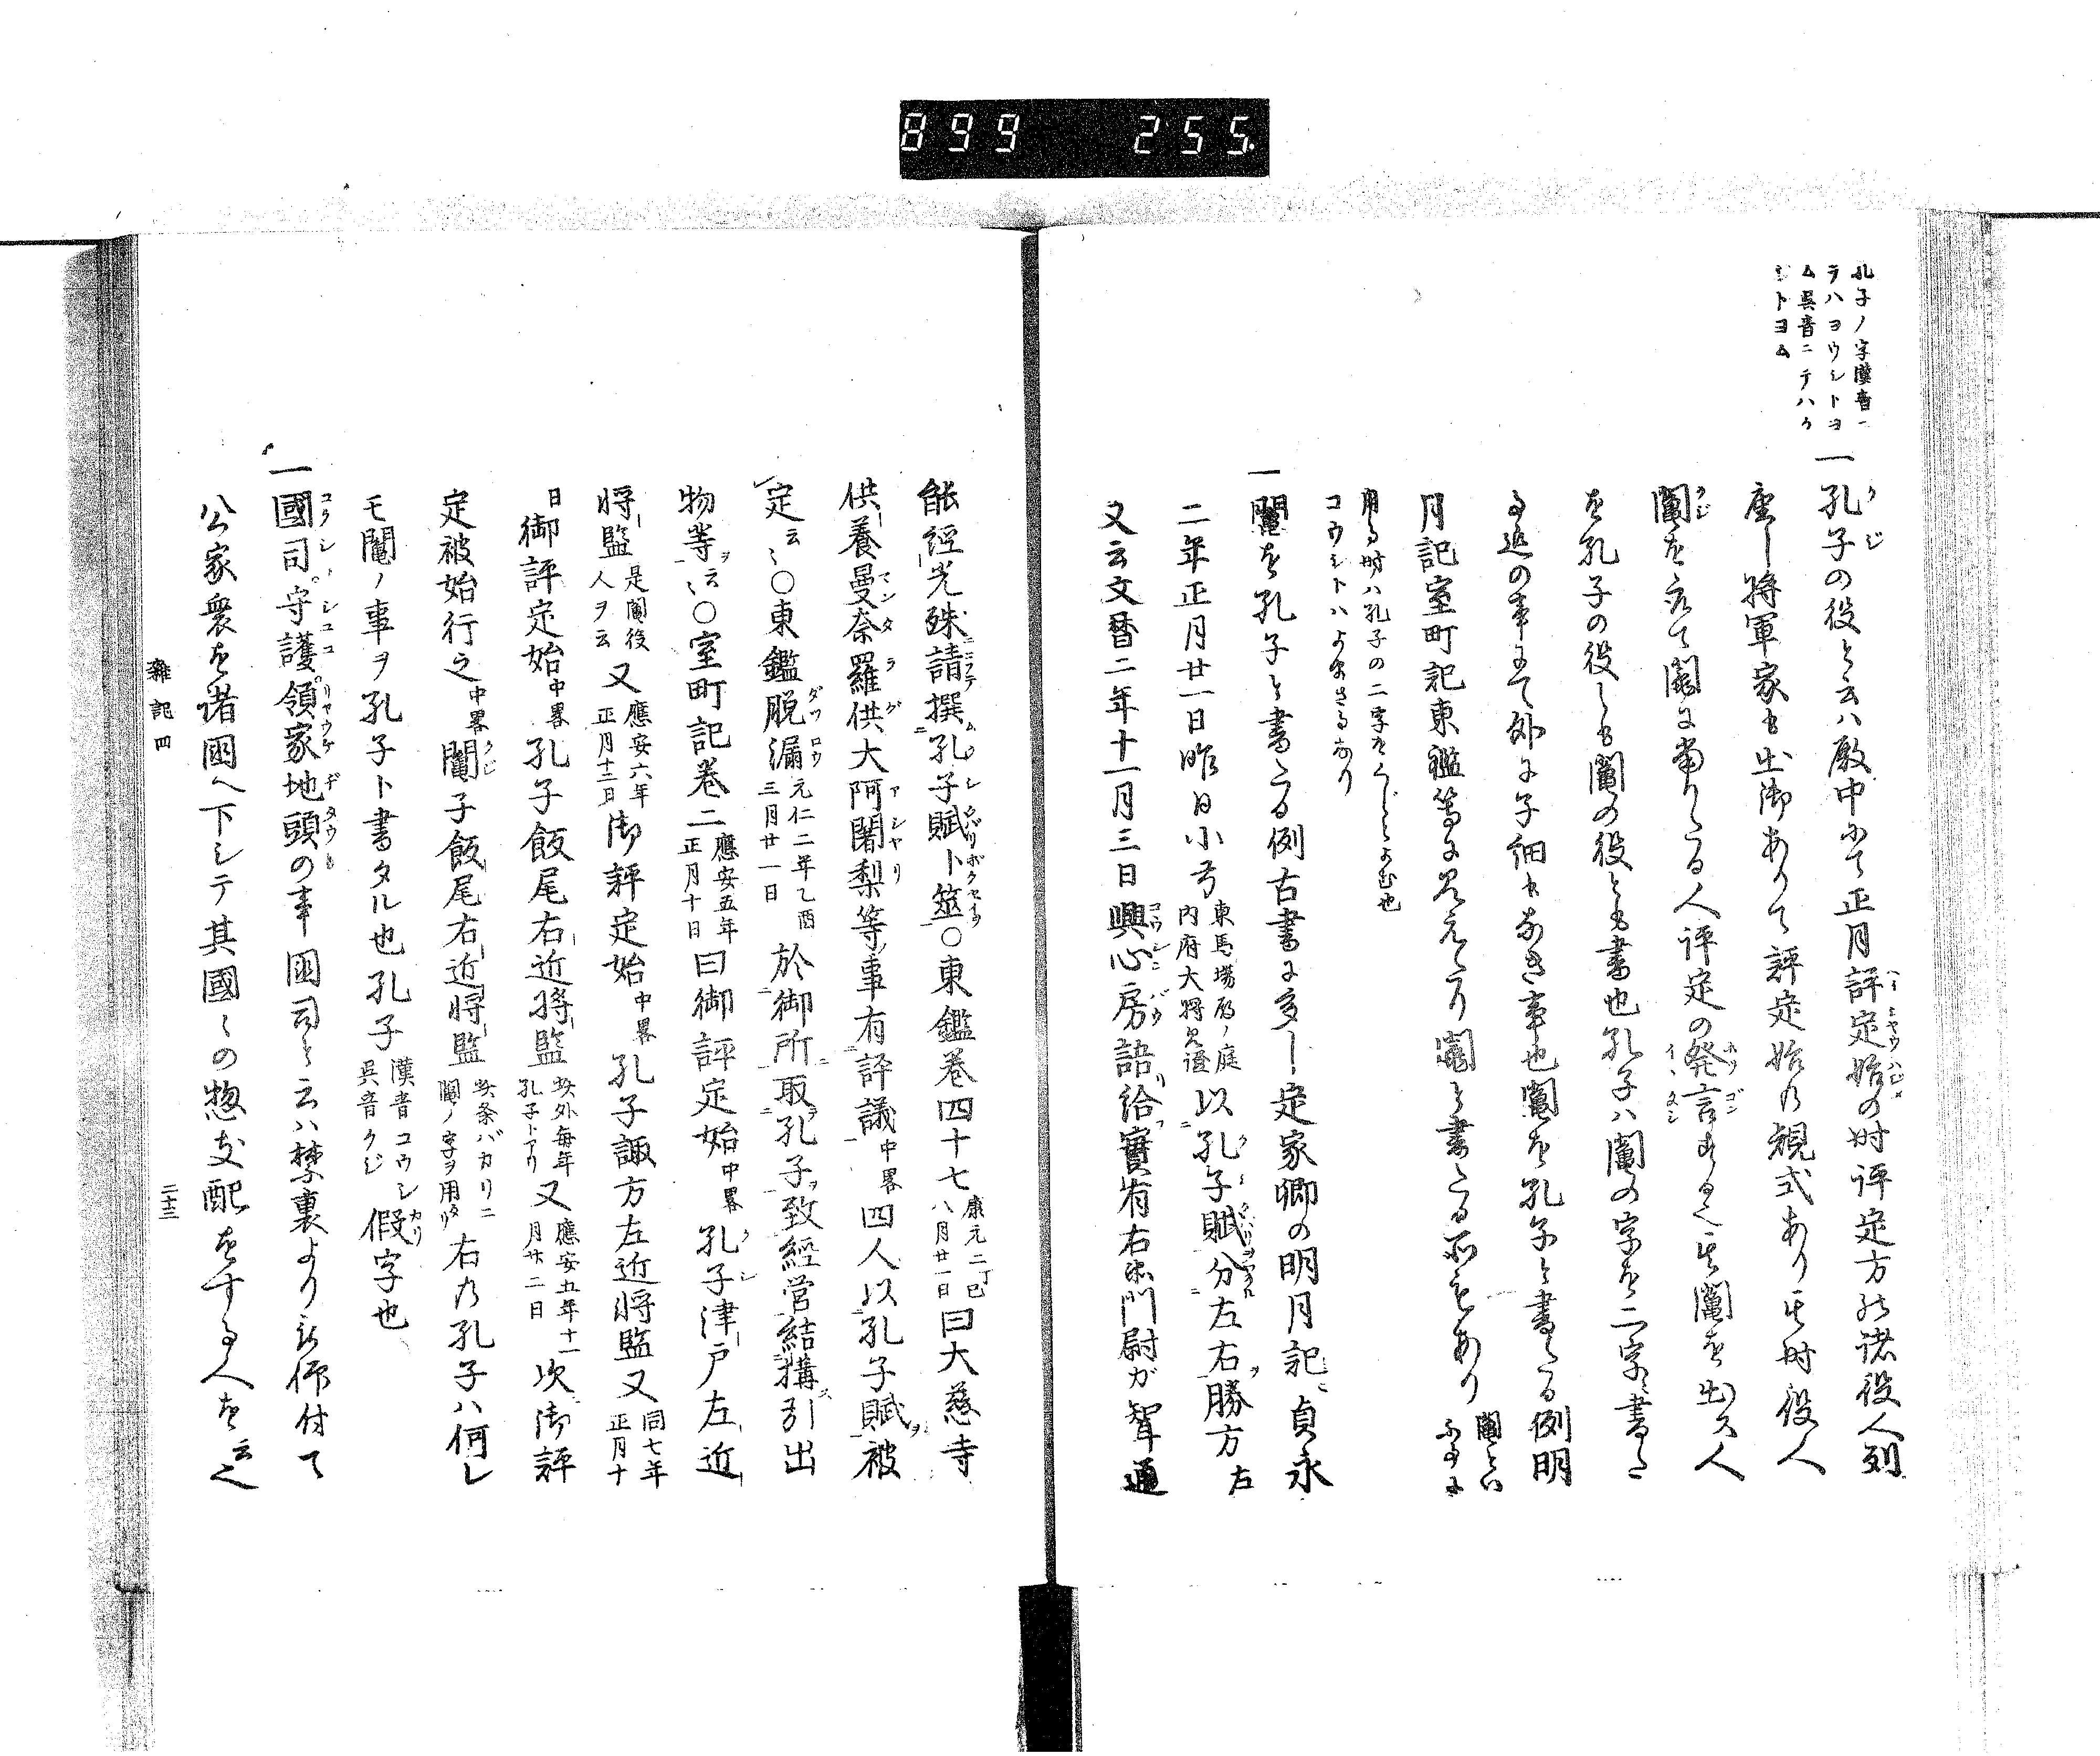 899 255
孔子ノ字漢音ニ
テハコウシトヨ
ム呉音ニテハク
ジトヨム
一孔子の役と云ハ殿中にて正月評定始の時評定方の諸役人列
座し将軍家も出御ありて評定始の規式あり其時役人
鬮を取て鬮に当りたる人評定の発言する也其鬮を出ス人
を孔子の役とも鬮の役とも書也孔子ハ鬮の字を二字ニ書た
る迄の事にて外に子細もなき事也鬮を孔子と書たる例明
月記室町記東鑑等に見えたり鬮と書たる所もあり 鬮といふ事に
用る時ハ孔子の二字をくじとよむ也
コウシトハよまさるなり
一鬮を孔子と書たる例古書に多し定家卿の明月記ニ貞永
二年正月廿一日昨日小弓 東馬場殿ノ庭 内府大将已證 以孔子賦分左右勝方左
又云文暦二年十一月三日興心房語給實有右衛門尉が聟通
能經光殊請撰孔子賦卜筮〇東鑑巻四十七 康元二丁巳 八月廿一日 曰大慈寺
供養曼奈羅供大阿闍梨等事有評議中畧四人以孔子賦被
定云〻〇東鑑脱漏 元仁二年乙酉 三月廿一日 於御所取孔子致經営結搆引出
物等云〻〇室町記巻二 應安五年 正月十日 曰御評定始中畧孔子津戸左近
将監 是鬮役 人ヲ云 又 應安六年 正月十二日 御評定始中畧孔子諏方左近将監又 同七年 正月十
日御評定始中畧孔子飯尾右近将監 此外毎年 孔子トアリ 又 應安五年十一 月廿二日 次御評
定被始行之中畧鬮子飯尾右近将監 此条バカリニ 鬮ノ字ヲ用タリ 右乃孔子ハ何レ
モ鬮ノ事ヲ孔子ト書タル也孔子 漢音コウシ 呉音クジ 假字也
一國司守護領家地頭の事 国司と云ハ禁裏より被仰付て
公家衆を諸国へ下シテ其國〻の惣支配をする人を云也
雑記四 二十三